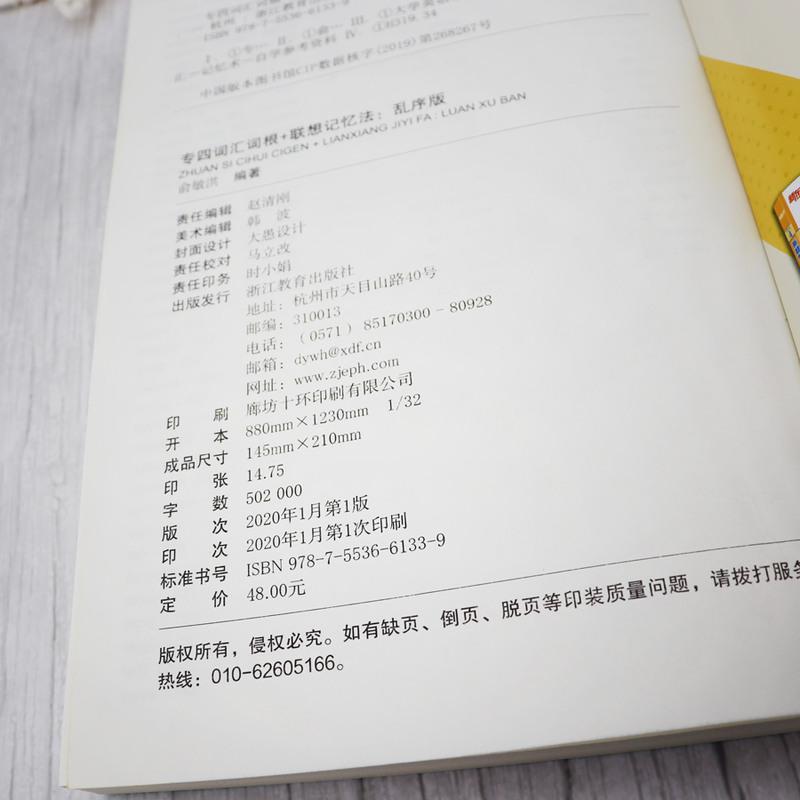 杭州 : 浙江教育出
ISBN 978-7-5536-6133-9
Ⅰ. ①专… Ⅱ. ①俞… Ⅲ. ①大学英
—记忆术—自学参考资料 Ⅳ. ①H319.34
中国版本图书馆CIP数据核字(2019)第268267号
专四词汇词根+联想记忆法：乱序版
ZHUAN SI CIHUI CIGEN + LIANXIANG JIYI FA : LUAN XU BAN
俞敏洪 编著
责任编辑 赵清刚
美术编辑 韩 波
封面设计 大愚设计
责任校对 马立改
责任印务 时小娟
出版发行 浙江教育出版社
地址：杭州市天目山路40号
邮编：310013
电话：（0571）85170300 - 80928
邮箱：dywh@xdf.cn
网址：www.zjeph.com
印 刷 廊坊十环印刷有限公司
开 本 880mm×1230mm 1/32
成品尺寸 145mm×210mm
印 张 14.75
字 数 502 000
版 次 2020年1月第1版
印 次 2020年1月第1次印刷
标准书号 ISBN 978-7-5536-6133-9
定 价 48.00元
版权所有，侵权必究。如有缺页、倒页、脱页等印装质量问题，请拨打服务
热线：010-62605166。